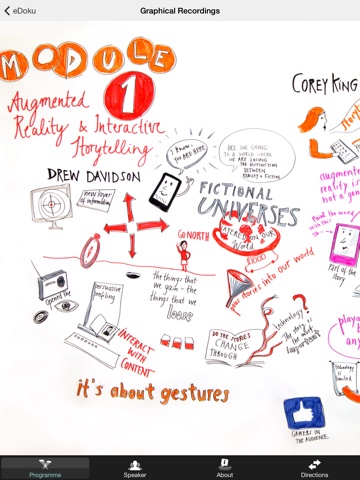 eDoku
Graphical Recordings
MODULE
1
Augmented
Reality & Interactive
Storytelling
COREY KING
DREW DAVIDSON
new layer of
information
I know
YOU ARE HERE
ARE WE GOING
TO A WORLD WHERE
WE ARE LOSING
THE DISTINCTION
BETWEEN
REALITY & FICTION
FICTIONAL
UNIVERSES
LAYERED ON OUR
World
GO NORTH
pour stories into our world
augmented
reality is
not a gen
Part of the
story
opened the
persuasive
profiling
the things that
we gain – the
things that we
loose
INTERACT
WITH
CONTENT
DO THE STORIES
CHANGE
THROUGH
technology?
The story
playa
any
technology is
limited
it's about gestures
GAMERS IN
THE AUDIENCE
Programme
Speaker
About
Directions